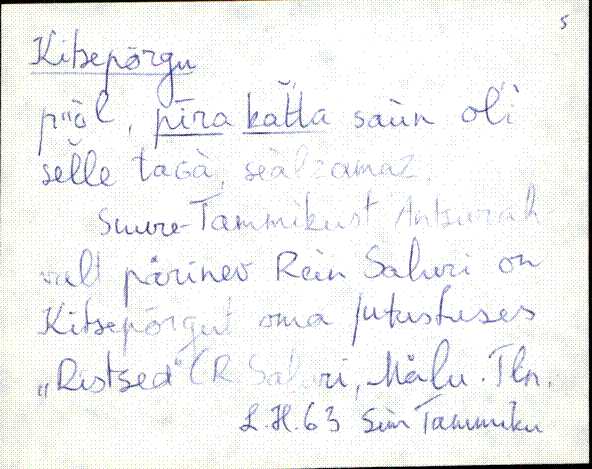 5
Kitsepõrgu
pööl, pīra katta saun oli
selle tagà, sèalzamaz.
Suure-Tammikust Antsurah
valt pärinev Rein Saluri on
Kitsepõrgut oma jutustuses
„Ristsed“ (R Saluri, Mälu. Tln.
L.H.63 Sim Tammiku